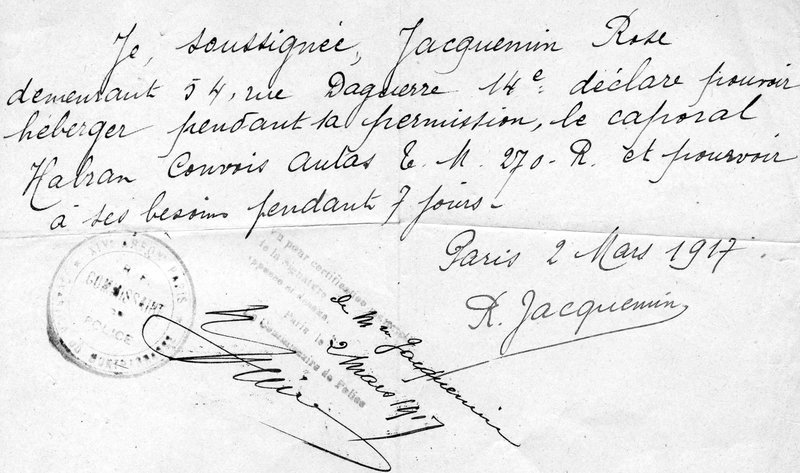 Je, soussignée, Jacquemin Rose
demeurant 54, rue Daguerre 14e. déclare pouvoir
héberger pendant sa permission, le caporal
Halran Convois autos T. M. 270-R. et pourvoir
à ses besoins pendant 7 jours-
Paris 2 Mars 1917.
R. Jacquemin
COMMISSAIRE
DE
POLICE
pour certification
de la signature
de Mme Jacquemin
Paris le
2 Mars 1917
Commissaire de Police